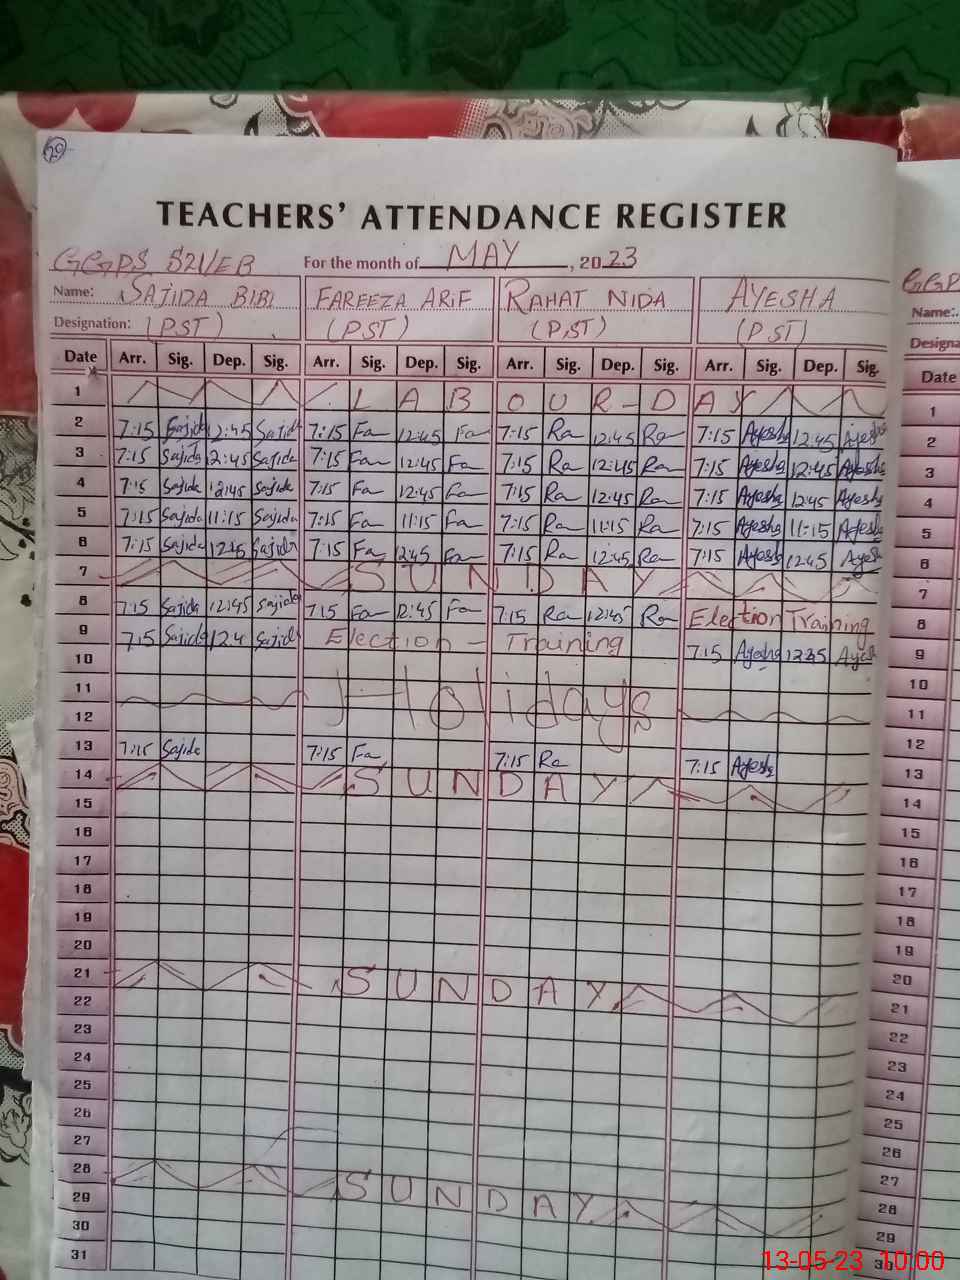 20
TEACHERS' ATTENDANCE REGISTER
GGPS 521/EB For the month of MAY, 2023
Name: SAJIDA BIBI FAREEZA ARIF RAHAT NIDA AYESHA
Designation: (PST) (PST) (PST) (PST)
Date Arr. Sig. Dep. Sig. Arr. Sig. Dep. Sig. Arr. Sig. Dep. Sig. Arr. Sig. Dep. Sig.
1 LABOUR-DAY
2 7:15 Sajida 12:45 Sajida 7:15 Fa 12:45 Fa 7:15 Ra 12:45 Ra 7:15 Ayesha 12:45 Ayesha
3 7:15 Sajida 12:45 Sajida 7:15 Fa 12:45 Fa 7:15 Ra 12:45 Ra 7:15 Ayesha 12:45 Ayesha
4 7:15 Sajida 12:45 Sajida 7:15 Fa 12:45 Fa 7:15 Ra 12:45 Ra 7:15 Ayesha 12:45 Ayesha
5 7:15 Sajida 11:15 Sajida 7:15 Fa 11:15 Fa 7:15 Ra 11:15 Ra 7:15 Ayesha 11:15 Ayesha
6 7:15 Sajida 12:45 Sajida 7:15 Fa 12:45 Fa 7:15 Ra 12:45 Ra 7:15 Ayesha 12:45 Ayesh
7 SUNDAY
8 7:15 Sajida 12:45 Sajida 7:15 Fa 12:45 Fa 7:15 Ra 12:45 Ra Election Training
9 7:15 Sajida 12:4 Sajida Election - Training 7:15 Ayesha 12:45 Ayesh
10
11 Holidays
12
13 7:15 Sajida 7:15 Fa 7:15 Ra 7:15 Ayesha
14 SUNDAY
15
16
17
18
19
20
21 SUNDAY
22
23
24
25
26
27
28 SUNDAY
29
30
31
GGP
Name:.
Designa
Date
1
2
3
4
5
6
7
8
9
10
11
12
13
14
15
16
17
18
19
20
21
22
23
24
25
26
27
28
29
30
13-05-23 10:00